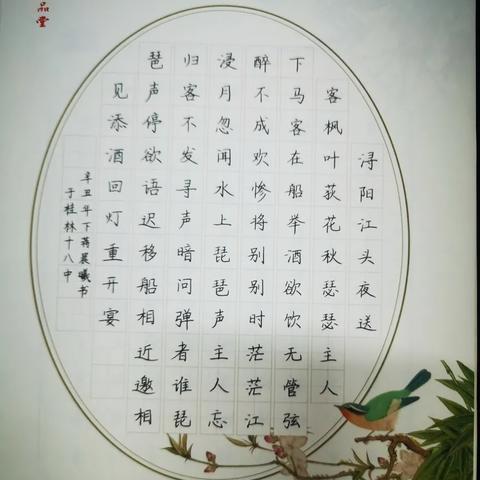 品堂
浔阳江头夜送
客枫叶荻花秋瑟瑟主人
下马客在船举酒欲饮无管弦
醉不成欢惨将别别时茫茫江
浸月忽闻水上琵琶声主人忘
归客不发寻声暗问弹者谁琵
琶声停欲语迟移船相近邀相
见添酒回灯重开宴
辛丑年下蒋晨曦书
于桂林十八中